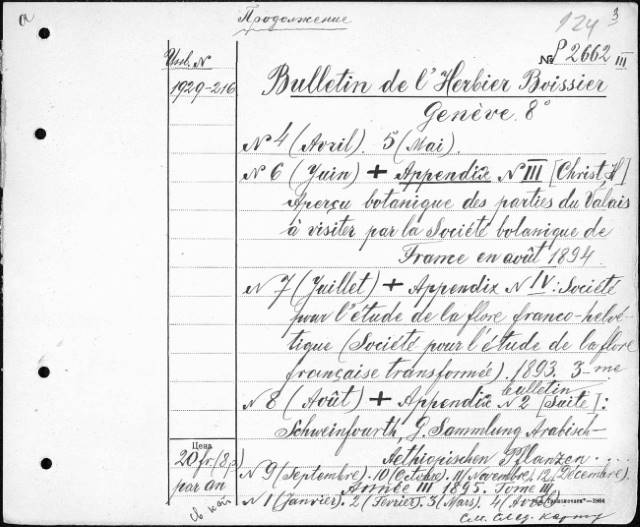 a
Продолжение
124 3
№ P 2662 III
Инв. №
1929-216
Bulletin de l'Herbier Boissier
Genève. 8°
N 4 (Avril). 5 (Mai).
N 6 (Juin) + Appendix N III [Christ H]
Aperçu botanique des parties du Valais
à visiter par la Société botanique de
France en août 1894.
N 7 (Juillet) + Appendix N IV: Société
pour l'étude de la flore franco-helvé-
tique (Société pour l'étude de la flore
française transformée). 1893. 3-me
bulletin
N 8 (Août) + Appendix N 2 [Suite]:
Schweinfourth, G. Sammlung Arabisch-
Aethiopischen Pflanzen....
Цена
20 fr. (8 р.)
par an
N 9 (Septembre). 10 (Octobre). 11 (Novembre). 12 (Décembre).
Année III 1895. Tome III
N 1 (Janvier). 2 (Février). 3 (Mars). 4 (Avril)
См. след. карту